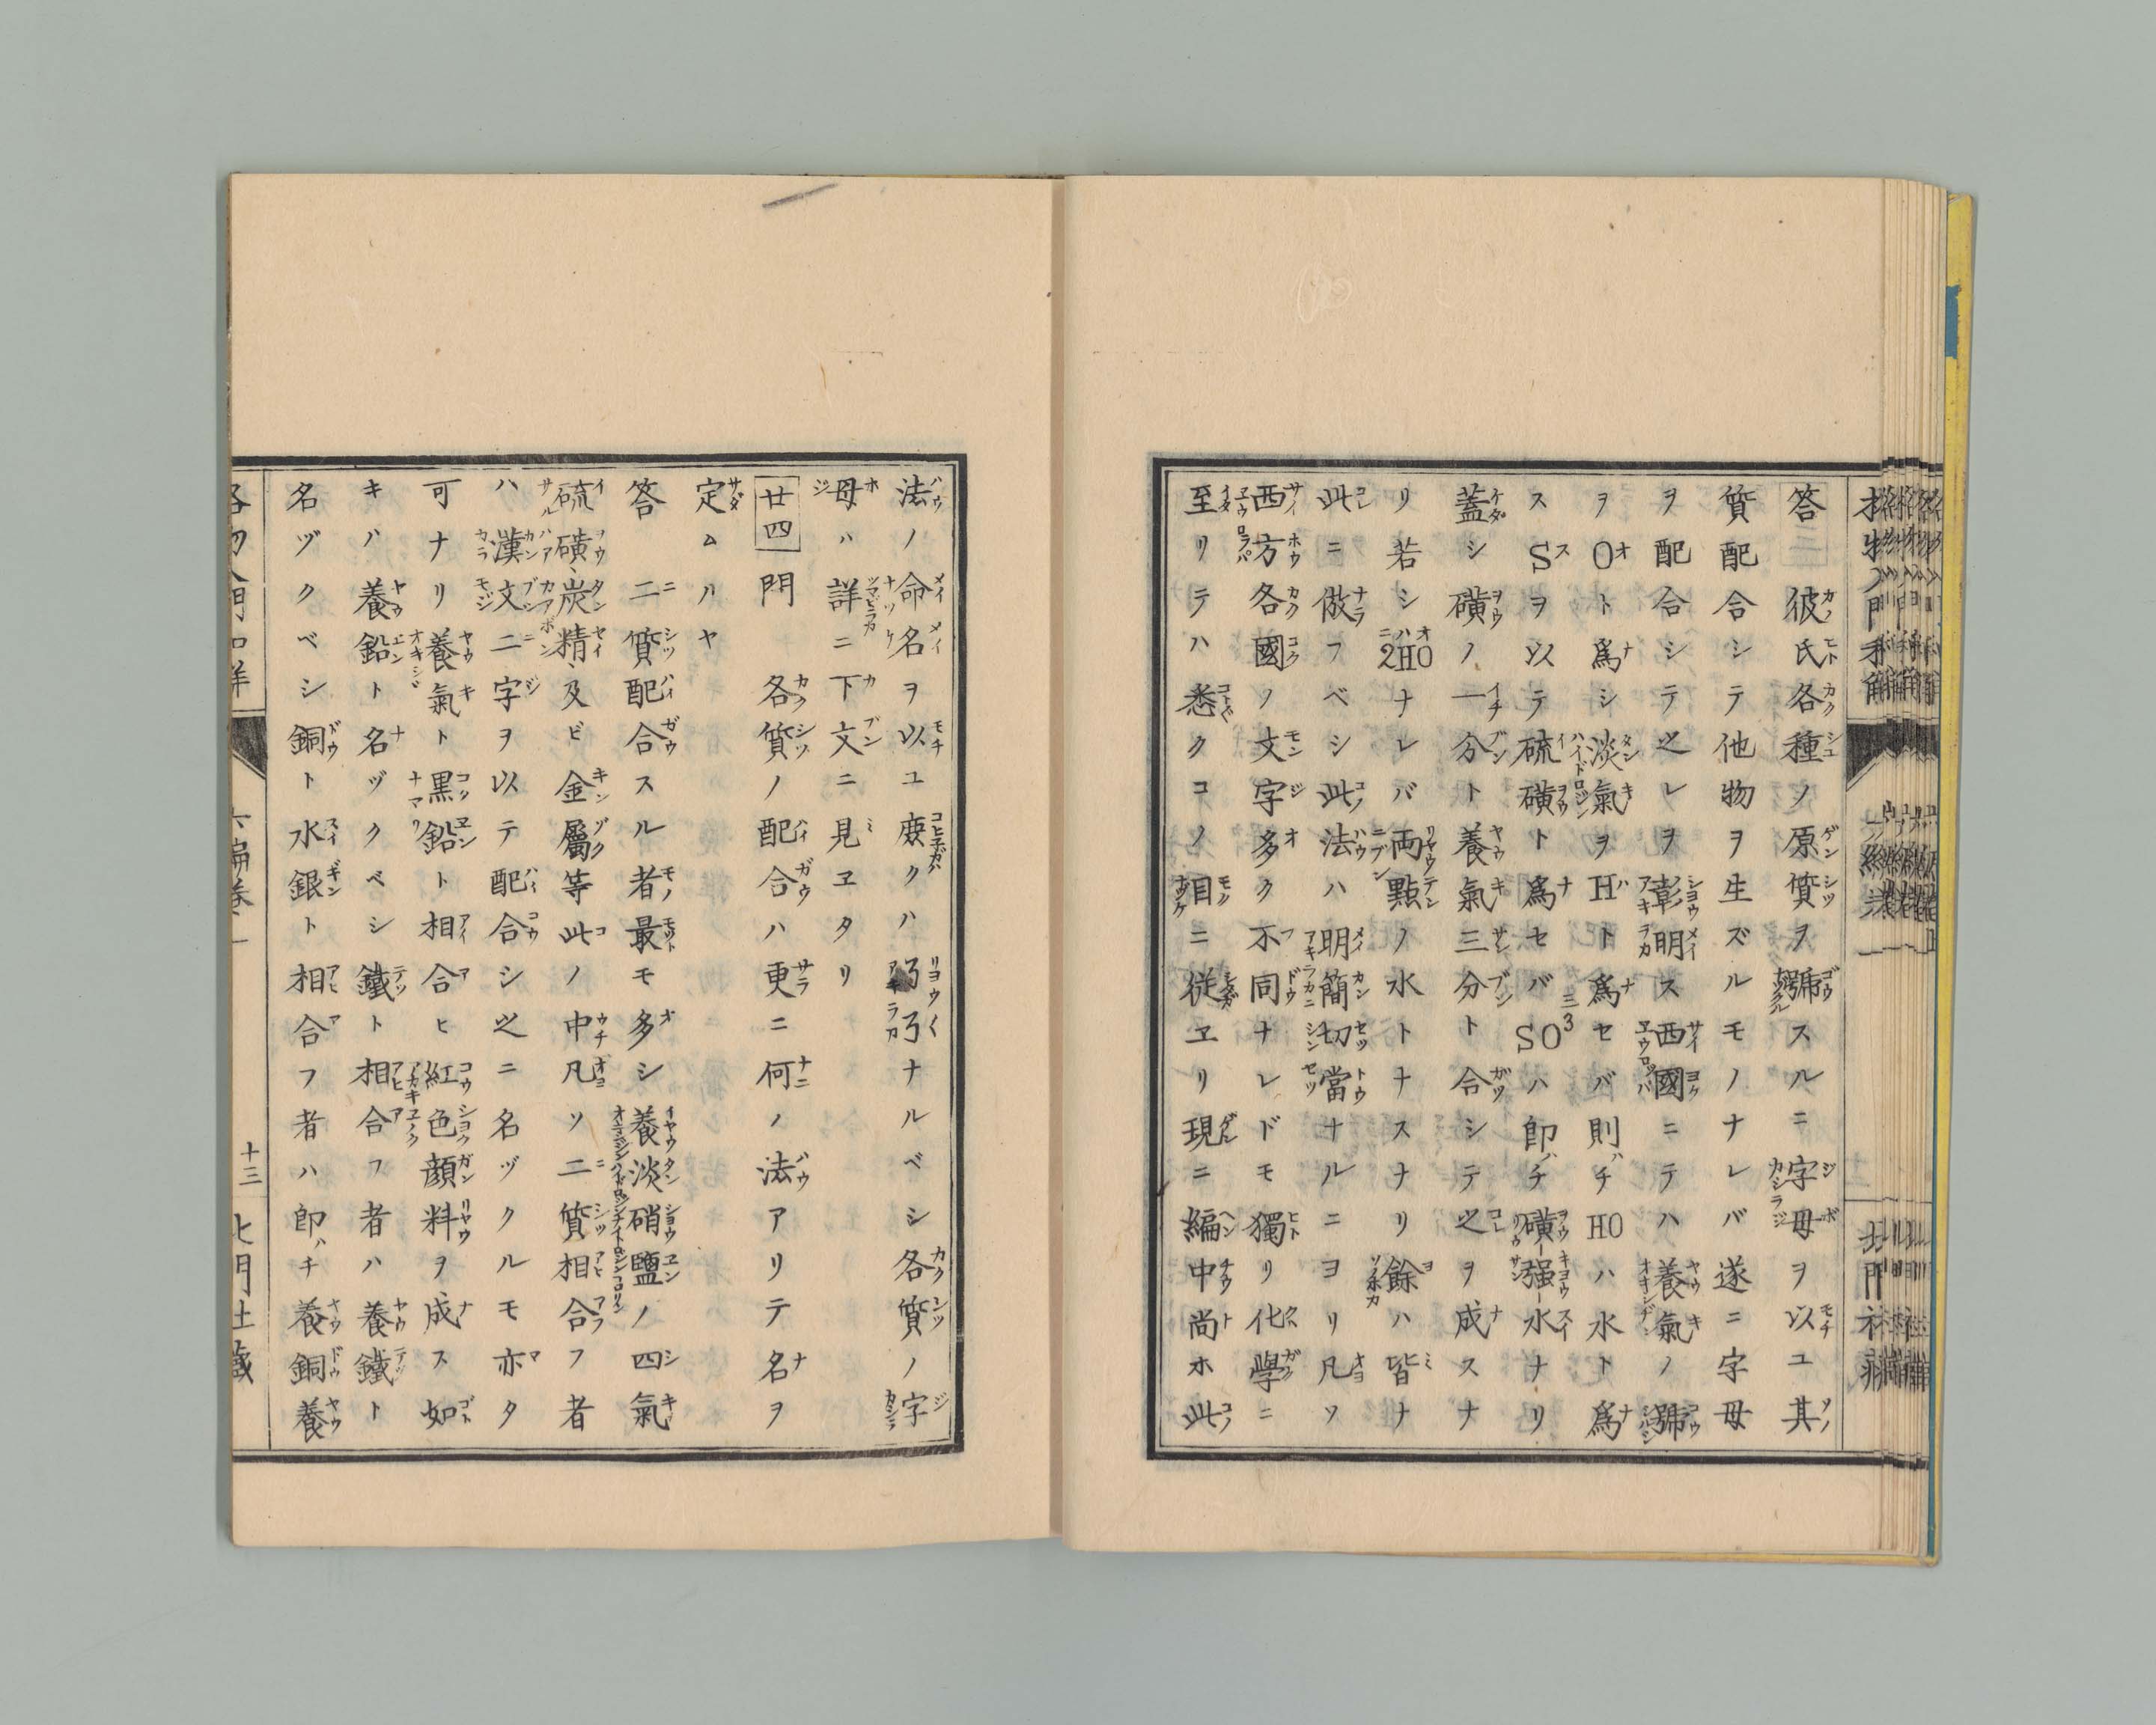 答 彼氏各種ノ原質ヲ號スルニ字母ヲ以ユ其
質配合シテ他物ヲ生ズルモノナレバ遂ニ字母
ヲ配合シテ之レヲ彰明ス西國ニテハ養氣ノ號
ヲOト爲シ淡氣ヲHト爲セバ則チHOハ水ト爲
スSヲ以テ硫磺ト爲セバSO³ハ即チ磺强水ナリ
蓋シ磺ノ一分ト養氣三分ト合シテ之ヲ成スナ
リ若シ2HOナレバ両點ノ水トナスナリ餘ハ皆ナ
此ニ倣フベシ此法ハ明簡切當ナルニヨリ凡ソ
西方各國ノ文字多ク不同ナレドモ獨リ化學ニ
至リテハ悉クコノ目ニ従ヱリ現ニ編中尚ホ此
法ノ命名ヲ以ユ庻クハ乃乃ナルベシ各質ノ字
母ハ詳ニ下文ニ見ヱタリ
廿四 問 各質ノ配合ハ更ニ何ノ法アリテ名ヲ
定ムハヤ
答 二質配合スル者最モ多シ養淡硝鹽ノ四氣
硫磺、炭精、及ビ金屬等此ノ中凡ソ二質相合フ者
ハ漢文二字ヲ以テ配合シ之ニ名ヅクルモ亦タ
可ナリ養氣ト黒鉛ト相合ヒ紅色顔料ヲ成ス如
キハ養鉛ト名ヅクベシ鐵ト相合フ者ハ養鐵ト
名ヅクベシ銅ト水銀ト相合フ者ハ即チ養銅養
十三